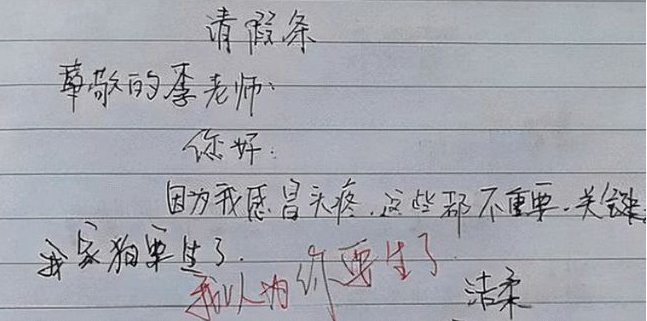 请假条
尊敬的李老师:
您好:
因为我感冒头疼.这些都不重要.关键是
我家狗要生了.
我以为你要生了
洁柔